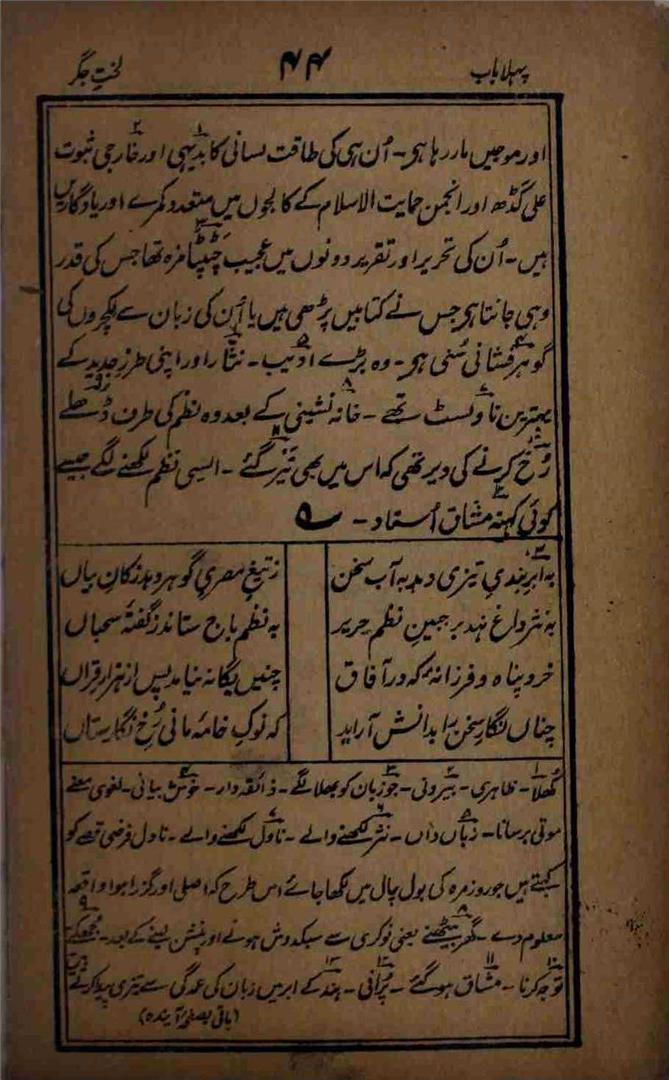 پہلا باب ۴۴ لختِ جگر
اور موجیں مار رہا ہی۔ اُن ہی کی طاقت لسانی کا بدیہی۱ اور خارجی۲ ثبوت
علی گڈھ اور انجمن حمایت الاسلام کے کالجوں میں متعدد کمرے اور یادگاریں
ہیں۔ اُن کی تحریر اور تقریر دونوں میں عجیب چَٹپٹا۳ مزہ تھا جس کی قدر
وہی جانتا ہی جس نے کتابیں پڑھی ہیں یا اُن کی زبان سے لکچروں کی
گوہر فشانی۴ سُنی ہی۔ وہ بڑے ادیب۵۔ نثّار۶ اور اپنی طرزِ جدید کے
بہترین ناولسٹ۷ تھے۔ خانہ نشینی۸ کے بعد وہ نظم کی طرف ڈھلے۹
رُخ۱۰ کرنے کی دیر تھی کہ اس میں بھی تَیر گئے۱۱۔ ایسی نظم لکھنے لگے جیسے
کوئی کہنہ۱۲ مشاق اُستاد۔ ؎
بہ ابرِ ہندیِ تیزی دہد بہ آب سخن۱۳ زتیغِ مصریِ گوہر دہد زکانِ بیاں
بہ نثر داغ نہد بر جبینِ نظم حریر بہ نظم باج ستاند ز گفتۂ سحباں
خرد پناہ و فرزانۂ کہ در آفاق چنیں یگانہ نیامد پس از ہزار قراں
چناں نگارِ سخن را بدانش آراید کہ نوکِ خامۂ مانی رُخِ نگارستاں
۱ کُھلا۔ ظاہری۔ ۲ بیرونی۔ ۳ جو زبان کو بھلا لگے۔ ذائقہ دار۔ ۴ خوش بیانی۔ لغوی معنے
موتی برسانا۔ ۵ زباں داں۔ ۶ نثر لکھنے والے۔ ۷ ناول لکھنے والے۔ ناول فرضی قصے کو
کہتے ہیں جو روزمرہ کی بول چال میں لکھا جائے اس طرح کہ اصلی اور گزرا ہوا واقعہ
معلوم دے۔ ۸ گھر بیٹھنے یعنی نوکری سے سبکدوش ہونے اور پنشن لینے کے بعد۔ ۹ جُھکے
۱۰ توجہ کرنا۔ ۱۱ مشاق ہو گئے۔ ۱۲ پُرانی۔ ۱۳ ہند کے ابر میں زبان کی عمدگی سے تیزی پیدا کرتے
(باقی بصفحۂ آیندہ)